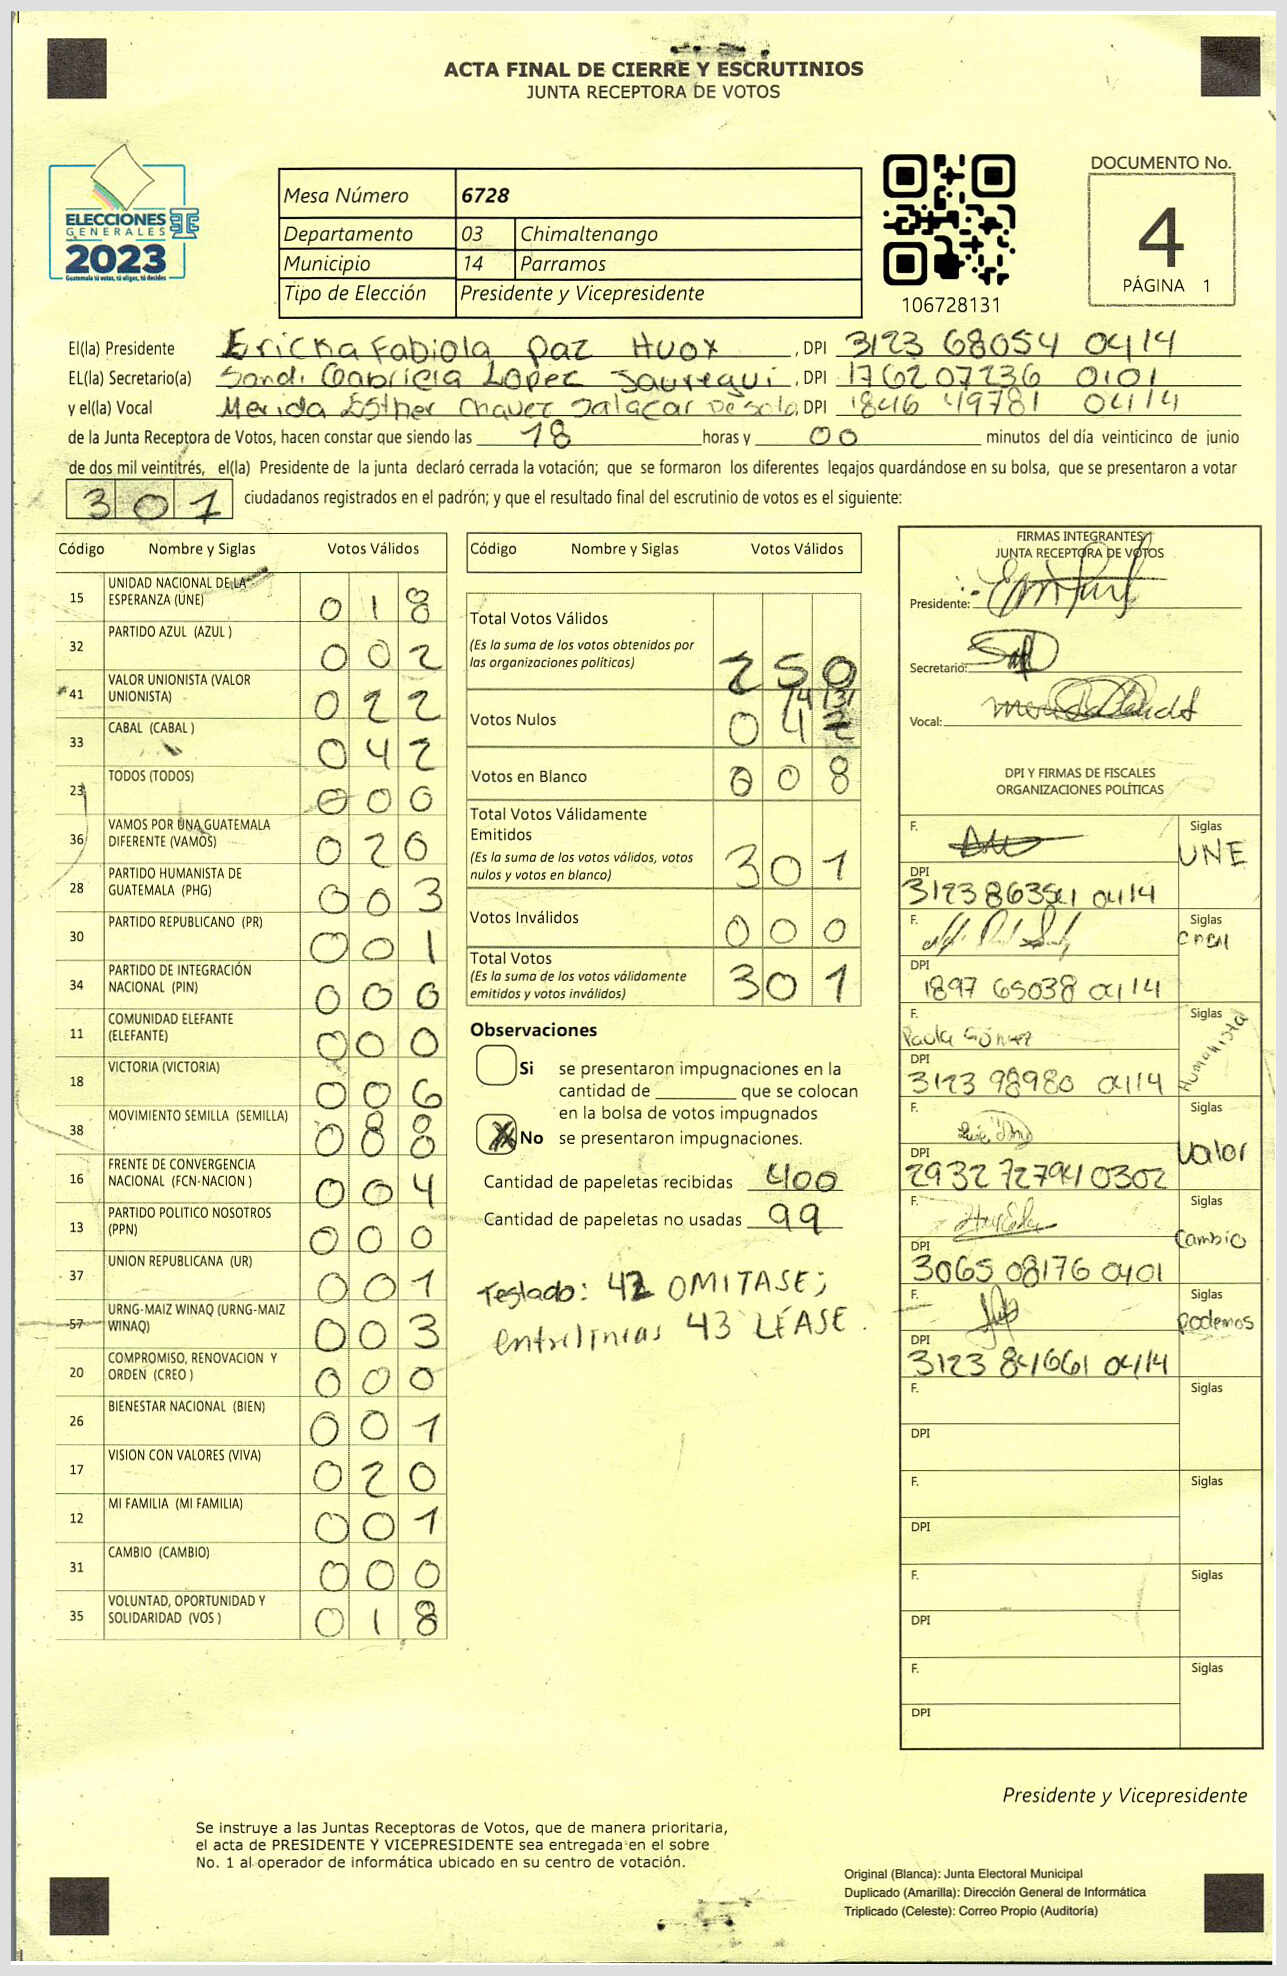 ACTA FINAL DE CIERRE Y ESCRUTINIOS
JUNTA RECEPTORA DE VOTOS
ELECCIONES
GENERALES
2023
Guatemala tú votas, tú eliges, tú decides
Mesa Número 6728
Departamento 03 Chimaltenango
Municipio 14 Parramos
Tipo de Elección Presidente y Vicepresidente
106728131
DOCUMENTO No.
4
PÁGINA 1
El(la) Presidente Ericka Fabiola Paz Huox , DPI 3123 68054 0414
EL(la) Secretario(a) Sandi Gabriela Lopez Jauregui , DPI 1762 07236 0101
y el(la) Vocal Merida Esther Chavez Salazar De Solo, DPI 1846 49781 0414
de la Junta Receptora de Votos, hacen constar que siendo las 18 horas y 00 minutos del día veinticinco de junio
de dos mil veintitrés, el(la) Presidente de la junta declaró cerrada la votación; que se formaron los diferentes legajos quardándose en su bolsa, que se presentaron a votar
301 ciudadanos registrados en el padrón; y que el resultado final del escrutinio de votos es el siguiente:
Código Nombre y Siglas Votos Válidos
15 UNIDAD NACIONAL DE LA ESPERANZA (UNE) 018
32 PARTIDO AZUL (AZUL ) 002
41 VALOR UNIONISTA (VALOR UNIONISTA) 022
33 CABAL (CABAL ) 042
23 TODOS (TODOS) 000
36 VAMOS POR UNA GUATEMALA DIFERENTE (VAMOS) 020
28 PARTIDO HUMANISTA DE GUATEMALA (PHG) 003
30 PARTIDO REPUBLICANO (PR) 001
34 PARTIDO DE INTEGRACIÓN NACIONAL (PIN) 000
11 COMUNIDAD ELEFANTE (ELEFANTE) 000
18 VICTORIA (VICTORIA) 006
38 MOVIMIENTO SEMILLA (SEMILLA) 088
16 FRENTE DE CONVERGENCIA NACIONAL (FCN-NACION ) 004
13 PARTIDO POLITICO NOSOTROS (PPN) 000
37 UNION REPUBLICANA (UR) 001
57 URNG-MAIZ WINAQ (URNG-MAIZ WINAQ) 003
20 COMPROMISO, RENOVACION Y ORDEN (CREO ) 000
26 BIENESTAR NACIONAL (BIEN) 001
17 VISION CON VALORES (VIVA) 020
12 MI FAMILIA (MI FAMILIA) 001
31 CAMBIO (CAMBIO) 000
35 VOLUNTAD, OPORTUNIDAD Y SOLIDARIDAD (VOS ) 018
Código Nombre y Siglas Votos Válidos
Total Votos Válidos
(Es la suma de los votos obtenidos por
las organizaciones políticas) 250
43
Votos Nulos 042
Votos en Blanco 008
Total Votos Válidamente
Emitidos
(Es la suma de los votos válidos, votos
nulos y votos en blanco) 301
Votos Inválidos 000
Total Votos
(Es la suma de los votos válidamente
emitidos y votos inválidos) 301
Observaciones
Si se presentaron impugnaciones en la
cantidad de ________ que se colocan
en la bolsa de votos impugnados
X No se presentaron impugnaciones.
Cantidad de papeletas recibidas 400
Cantidad de papeletas no usadas 99
Testado: 42 OMITASE;
entrelineas 43 LÉASE.
FIRMAS INTEGRANTES
JUNTA RECEPTORA DE VOTOS
Presidente:
Secretario:
Vocal:
DPI Y FIRMAS DE FISCALES
ORGANIZACIONES POLÍTICAS
F. Siglas UNE
DPI 3123 86354 0414
F. Siglas CABAL
DPI 1897 65038 0414
F. Paola Gómez Siglas Humanista
DPI 3123 98980 0414
F. Siglas Valor
DPI 2932 72794 0302
F. Siglas Cambio
DPI 3065 08176 0401
F. Siglas Podemos
DPI 3123 84661 0414
F. Siglas
DPI
F. Siglas
DPI
F. Siglas
DPI
F. Siglas
DPI
Presidente y Vicepresidente
Se instruye a las Juntas Receptoras de Votos, que de manera prioritaria,
el acta de PRESIDENTE Y VICEPRESIDENTE sea entregada en el sobre
No. 1 al operador de informática ubicado en su centro de votación.
Original (Blanca): Junta Electoral Municipal
Duplicado (Amarilla): Dirección General de Informática
Triplicado (Celeste): Correo Propio (Auditoría)